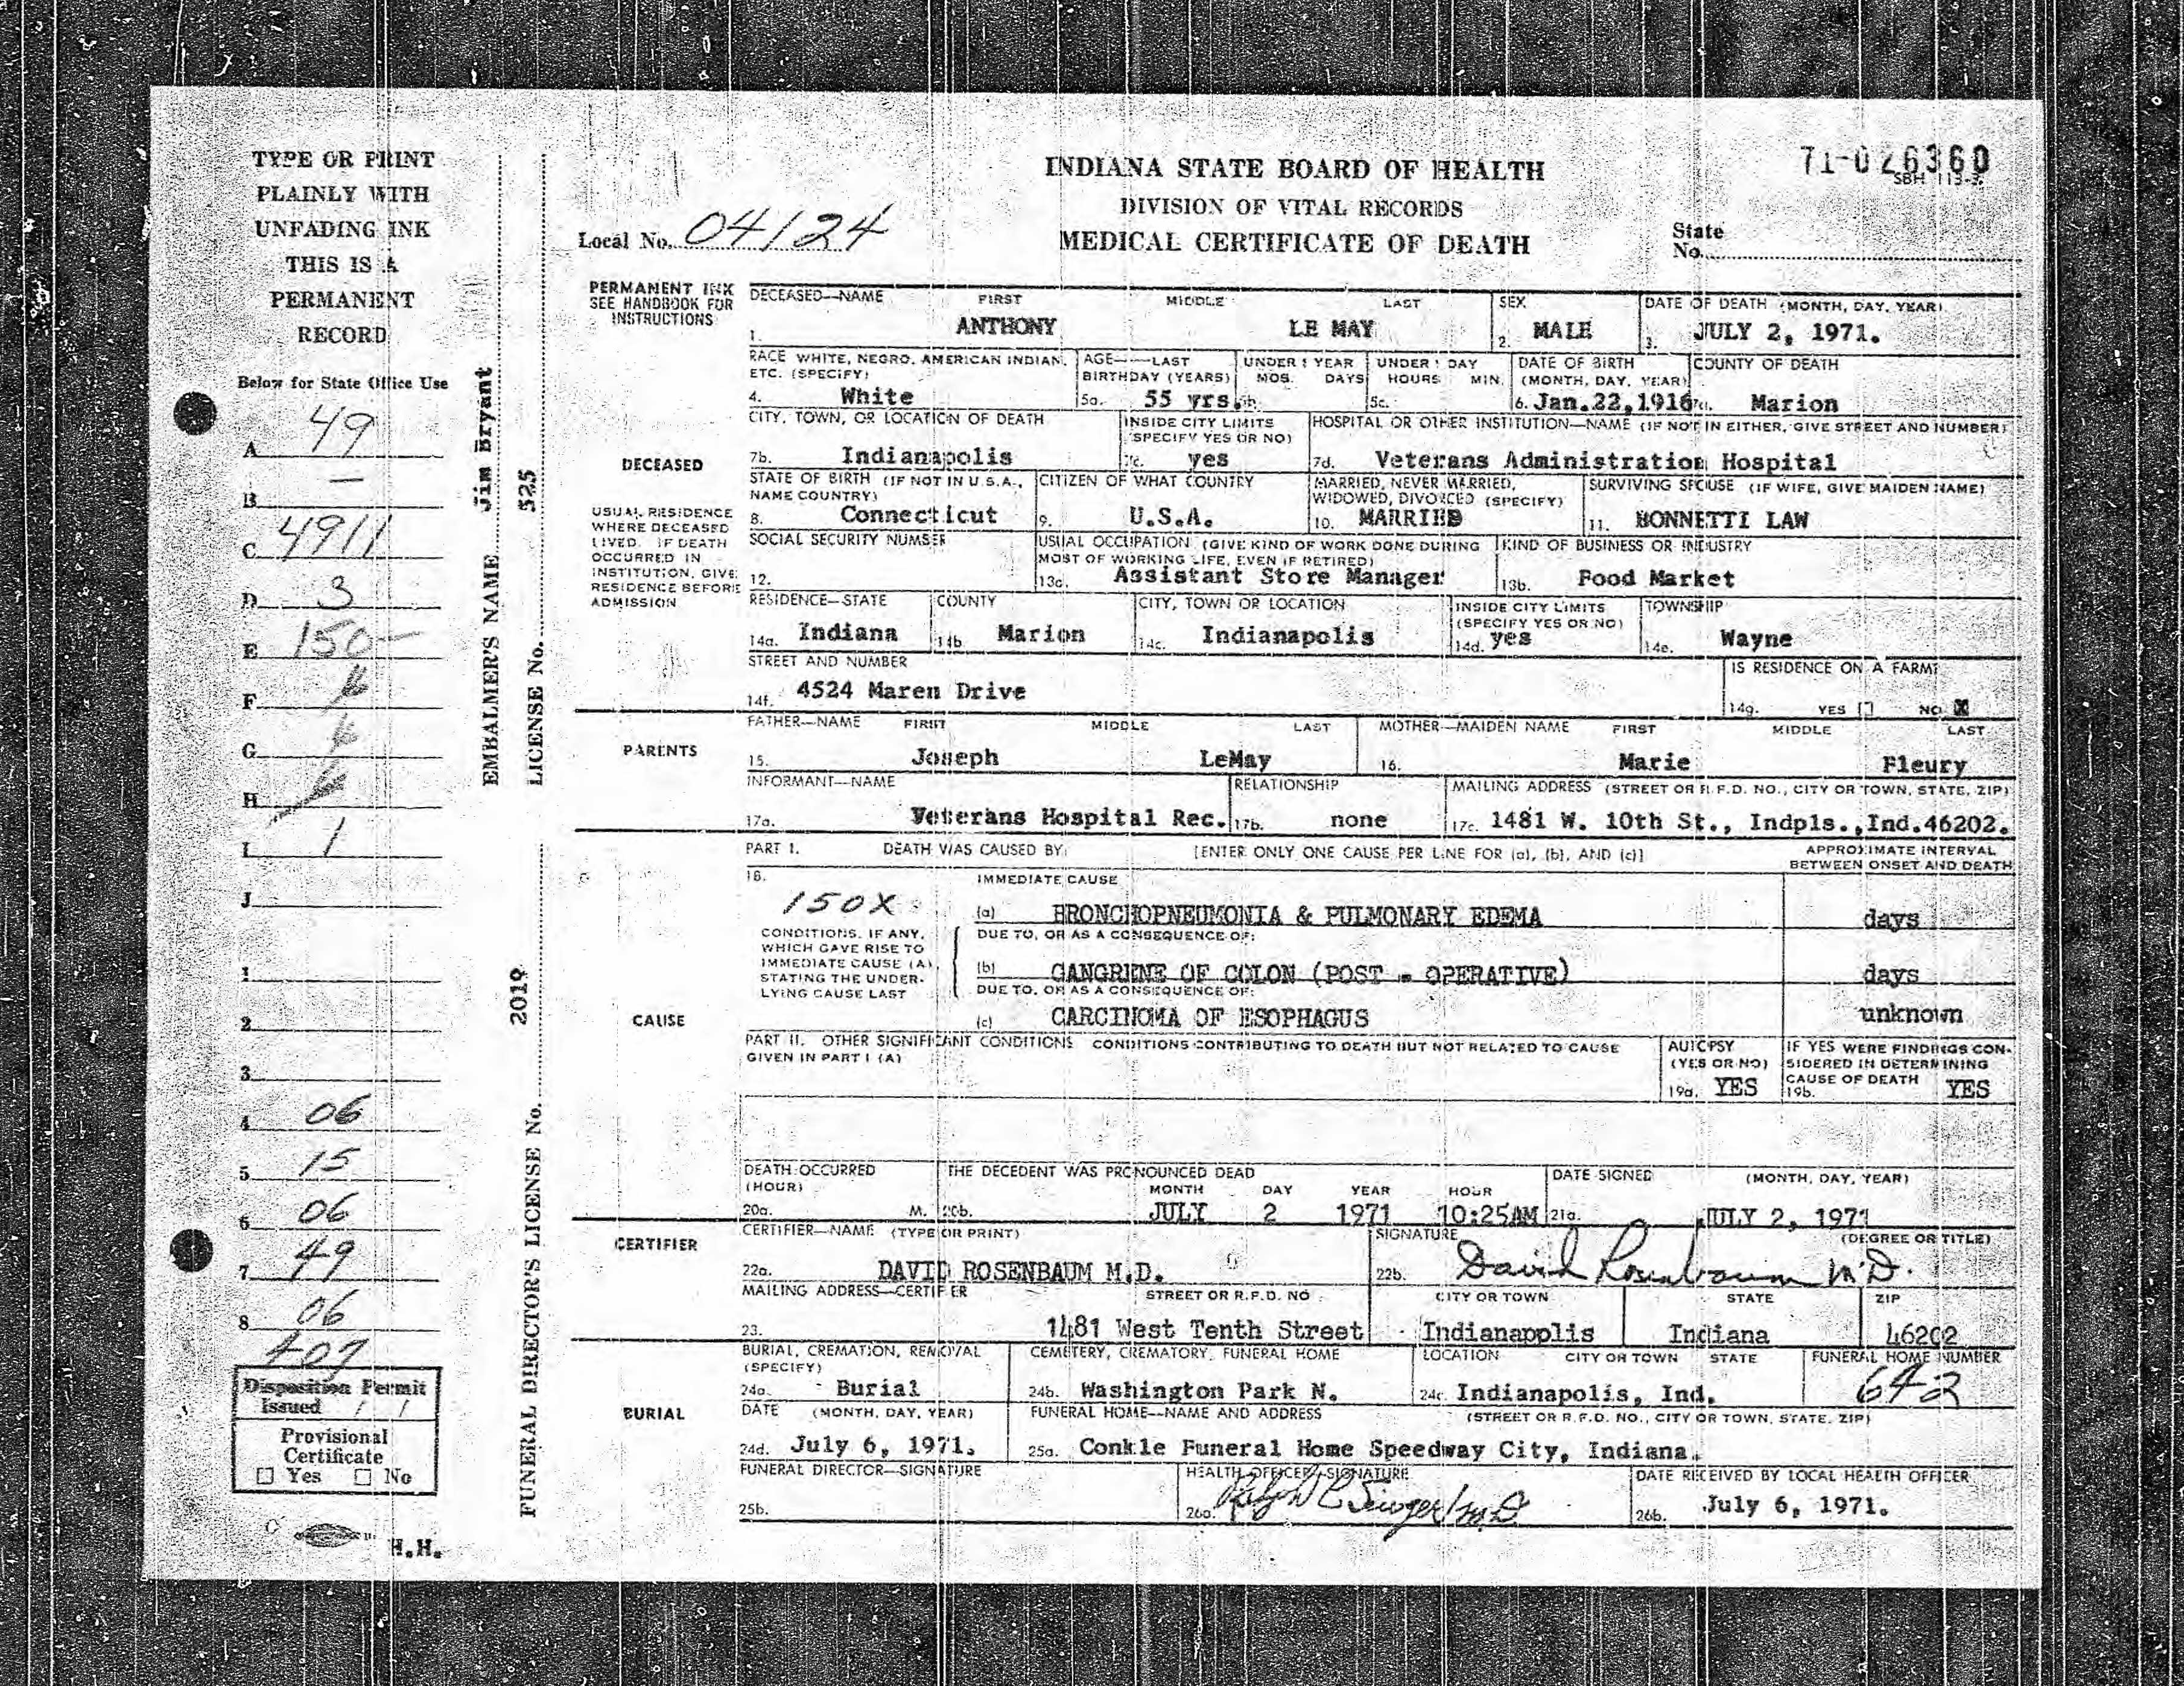 TYPE OR PRINT
PLAINLY WITH
UNFADING INK
THIS IS A
PERMANENT
RECORD
Below for State Office Use
A 49
B –
C 4911
D 3
E 150–
F
G
H
I 1
J
1
2
3
4 06
5 15
6 06
7 49
8 06
407
Disposition Permit
Issued / /
Provisional
Certificate
Yes No
H.H.
EMBALMER'S NAME Jim Bryant
LICENSE No. 525
FUNERAL DIRECTOR'S LICENSE No. 2019
INDIANA STATE BOARD OF HEALTH
DIVISION OF VITAL RECORDS
MEDICAL CERTIFICATE OF DEATH
71-026360
SBH 113-3
Local No. 04124
State
No.
PERMANENT INK
SEE HANDBOOK FOR
INSTRUCTIONS
DECEASED—NAME FIRST MIDDLE LAST SEX DATE OF DEATH (MONTH, DAY, YEAR)
1. ANTHONY LE MAY 2. MALE 3. JULY 2, 1971.
RACE WHITE, NEGRO, AMERICAN INDIAN, AGE—LAST UNDER 1 YEAR UNDER 1 DAY DATE OF BIRTH COUNTY OF DEATH
ETC. (SPECIFY) BIRTHDAY (YEARS) MOS. DAYS HOURS MIN. (MONTH, DAY, YEAR)
4. White 5a. 55 yrs. 5b. 5c. 6. Jan.22,1916 7a. Marion
CITY, TOWN, OR LOCATION OF DEATH INSIDE CITY LIMITS HOSPITAL OR OTHER INSTITUTION—NAME (IF NOT IN EITHER, GIVE STREET AND NUMBER)
(SPECIFY YES OR NO)
DECEASED
7b. Indianapolis 7c. yes 7d. Veterans Administration Hospital
STATE OF BIRTH (IF NOT IN U.S.A., CITIZEN OF WHAT COUNTRY MARRIED, NEVER MARRIED, SURVIVING SPOUSE (IF WIFE, GIVE MAIDEN NAME)
NAME COUNTRY) WIDOWED, DIVORCED (SPECIFY)
8. Connecticut 9. U.S.A. 10. MARRIED 11. BONNETTI LAW
USUAL RESIDENCE
WHERE DECEASED
LIVED. IF DEATH
OCCURRED IN
INSTITUTION, GIVE
RESIDENCE BEFORE
ADMISSION
SOCIAL SECURITY NUMBER USUAL OCCUPATION (GIVE KIND OF WORK DONE DURING KIND OF BUSINESS OR INDUSTRY
MOST OF WORKING LIFE, EVEN IF RETIRED)
12. 13a. Assistant Store Manager 13b. Food Market
RESIDENCE—STATE COUNTY CITY, TOWN OR LOCATION INSIDE CITY LIMITS TOWNSHIP
(SPECIFY YES OR NO)
14a. Indiana 14b. Marion 14c. Indianapolis 14d. yes 14e. Wayne
STREET AND NUMBER IS RESIDENCE ON A FARM?
14f. 4524 Maren Drive 14g. YES NO X
PARENTS
FATHER—NAME FIRST MIDDLE LAST MOTHER—MAIDEN NAME FIRST MIDDLE LAST
15. Joseph LeMay 16. Marie Fleury
INFORMANT—NAME RELATIONSHIP MAILING ADDRESS (STREET OR R.F.D. NO., CITY OR TOWN, STATE, ZIP)
17a. Veterans Hospital Rec. 17b. none 17c. 1481 W. 10th St., Indpls.,Ind.46202.
PART I. DEATH WAS CAUSED BY: [ENTER ONLY ONE CAUSE PER LINE FOR (a), (b), AND (c)] APPROXIMATE INTERVAL
BETWEEN ONSET AND DEATH
18. IMMEDIATE CAUSE
150X (a) BRONCHOPNEUMONIA & PULMONARY EDEMA days
CONDITIONS, IF ANY,
WHICH GAVE RISE TO
IMMEDIATE CAUSE (A),
STATING THE UNDER-
LYING CAUSE LAST
DUE TO, OR AS A CONSEQUENCE OF:
(b) GANGRENE OF COLON (POST - OPERATIVE) days
DUE TO, OR AS A CONSEQUENCE OF:
CAUSE
(c) CARCINOMA OF ESOPHAGUS unknown
PART II. OTHER SIGNIFICANT CONDITIONS CONDITIONS CONTRIBUTING TO DEATH BUT NOT RELATED TO CAUSE AUTOPSY IF YES WERE FINDINGS CON-
GIVEN IN PART I (A) (YES OR NO) SIDERED IN DETERMINING
CAUSE OF DEATH
19a. YES 19b. YES
DEATH OCCURRED THE DECEDENT WAS PRONOUNCED DEAD DATE SIGNED (MONTH, DAY, YEAR)
(HOUR) MONTH DAY YEAR HOUR
20a. M. 20b. JULY 2 1971 10:25AM 21a. JULY 2, 1971
CERTIFIER
CERTIFIER—NAME (TYPE OR PRINT) SIGNATURE (DEGREE OR TITLE)
22a. DAVID ROSENBAUM M.D. 22b. David Rosenbaum M.D.
MAILING ADDRESS—CERTIFIER STREET OR R.F.D. NO. CITY OR TOWN STATE ZIP
23. 1481 West Tenth Street Indianapolis Indiana 46202
BURIAL
BURIAL, CREMATION, REMOVAL CEMETERY, CREMATORY, FUNERAL HOME LOCATION CITY OR TOWN STATE FUNERAL HOME NUMBER
(SPECIFY)
24a. Burial 24b. Washington Park N. 24c. Indianapolis, Ind. 642
DATE (MONTH, DAY, YEAR) FUNERAL HOME—NAME AND ADDRESS (STREET OR R.F.D. NO., CITY OR TOWN, STATE, ZIP)
24d. July 6, 1971. 25a. Conkle Funeral Home Speedway City, Indiana.
FUNERAL DIRECTOR—SIGNATURE HEALTH OFFICER—SIGNATURE DATE RECEIVED BY LOCAL HEALTH OFFICER
25b. 26a. 26b. July 6, 1971.